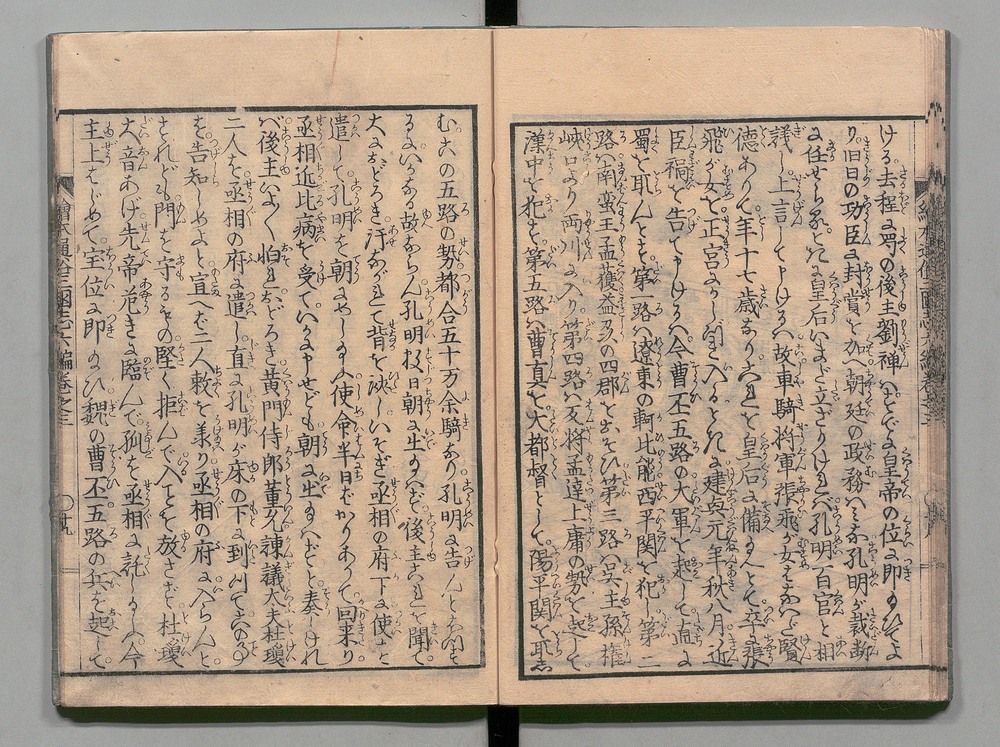 ける去程に蜀の後主劉禅はすでに皇帝の位に即き給ひてより
旧日の功臣に封賞を加へ朝廷の政務はミな孔明が裁断
に任せらるときに皇后いまだ立ざりければ孔明百官と相
議し上言して申けるハ故車騎将軍張飛が女きハめて賢
徳ありて年十七歳なりこれを皇后に備ふ
飛が女を正宮にかしづき入るときに建興元年秋八月近
臣禍を告て申けるハ今曹丕五路の大軍を起して直に
蜀を取んとす第一路ハ遼東の軻比能西平関を犯し第二
路ハ南蛮王孟獲益刕の四郡をおそひ第三路ハ呉主孫権
峡口より両川に入り第四路ハ反将孟達上庸の勢を起して
漢中を犯し第五路ハ曹真を大都督として陽平関を取し
む此五路の勢都合五十万余騎なり孔明に告んと
るにいかなる故ならん孔明数日朝に出給ハず後主これを聞て
大におどろき汗ながれて背を いそぎ丞相の府下に使を
遣して孔明を朝に 使命半日ばかりあつて回来り
丞相近比病を受て 朝に出給ハずと奏しけれ
ば後主いよ〱怕れおどろき黄門侍郎董允諫議大夫杜瓊
二人を丞相の府に遣し直に孔明が床の下に到りて
を告知しめよと宣へバ二人敕を承り丞相の府に入らんと
されども門を守るもの堅く拒んで入ことを放さず杜瓊
大音あげ先帝危きに臨んで孤を丞相に託し 今
主上はじめて宝位に即給ひ魏の曹丕五路の兵を起して
繪本通俗三國志六編巻之三